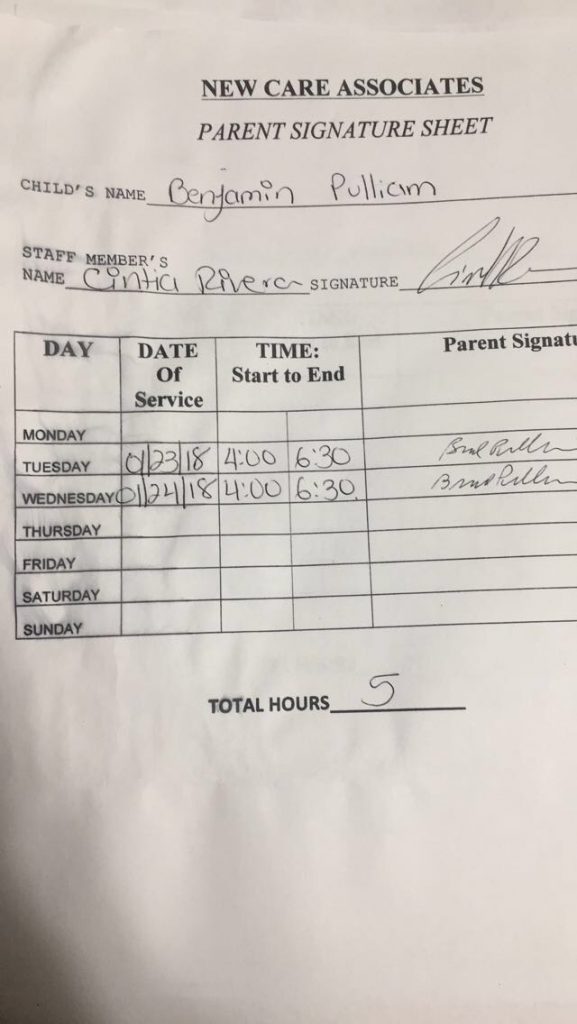 NEW CARE ASSOCIATES
PARENT SIGNATURE SHEET
CHILD'S NAME Benjamin Pulliam
STAFF MEMBER'S
NAME Cintia Rivera SIGNATURE
DAY DATE Of Service TIME: Start to End Parent Signatu
MONDAY
TUESDAY 01/23/18 4:00 6:30
WEDNESDAY 01/24/18 4:00 6:30
THURSDAY
FRIDAY
SATURDAY
SUNDAY
TOTAL HOURS 5